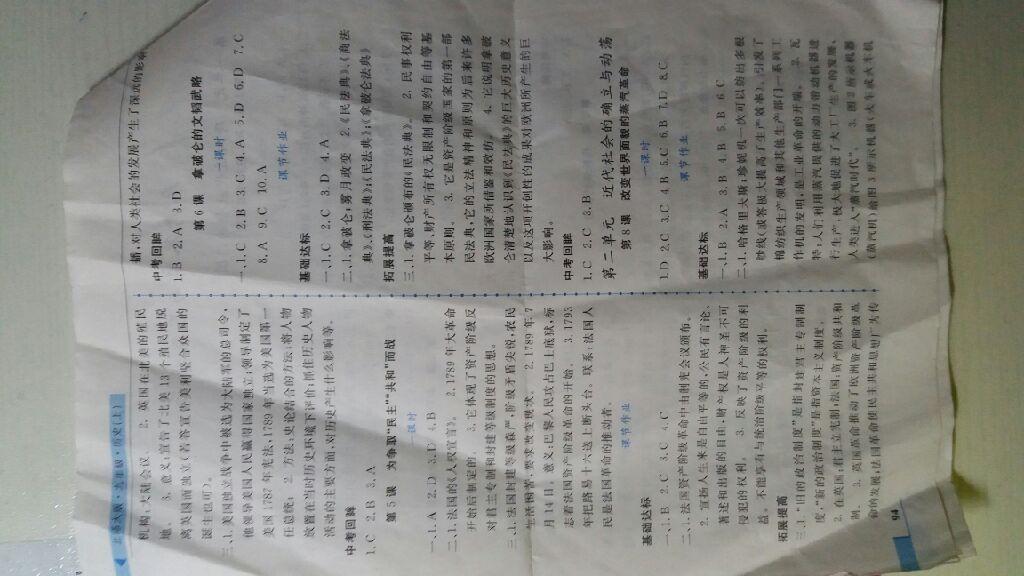 北师大版·九年级·历史(上)
机构:大陆会议。 2. 英国在北美的殖民
地。 3. 意义:宣告了:北美13个殖民地脱
离英国而独立(若答宣告美利坚合众国的
诞生也可)。
三、1. 美国独立战争中被选为大陆军的总司令,
他领导美国人民赢得国家独立;领导制定了
美国1787年宪法,1789年当选为美国第一
任总统; 2. 方法:史论结合的方法;将人物
放置在当时历史环境下评价;抓住历史人物
活动的主要方面,对历史产生什么影响等。
中考回眸
1. C 2. B 3. A
第5课 为争取“民主”“共和”而战
一课时
一、1. A 2. D 3. D 4. B
二、1. 法国的《人权宣言》。 2. 1789年大革命
开始后制定的。 3. 它体现了资产阶级反
对君主专制和封建等级制度的思想。
三、1. 法国封建等级森严,阶级矛盾尖锐,农民
生活困苦,要求改变现状。 2. 1789年7
月14日。意义:巴黎人民攻占巴士底狱,标
志着法国资产阶级革命的开始。 3. 1793
年把路易十六送上断头台。联系:法国人
民是法国革命的推动者。
课节作业
基础达标
一、1. B 2. C 3. C 4. C
二、1. 法国资产阶级革命中由制宪会议颁布。
2. 宣扬人生来是自由平等的,公民有言论、
著述和出版的自由,财产权是人神圣不可
侵犯的权利。 3. 反映了资产阶级的利
益。不能享有与统治阶级平等的权利。
拓展提高
三、1. “旧的政治制度”是指封建君主专制制
度,“新的政治制度”是指资本主义制度。
2. 在英国:君主立宪制;法国:资产阶级共和
制。 3. 英国革命推动了欧洲资产阶级革
命的发展;法国革命使民主共和思想广为传
94
播,对人类社会的发展产生了深远的影响
中考回眸
1. B 2. A 3. D
第6课 拿破仑的文韬武略
一课时
一、1. C 2. B 3. C 4. A 5. D 6. D 7. C
8. A 9. C 10. A
课节作业
基础达标
一、1. C 2. C 3. D 4. A
二、1. 拿破仑;雾月政变 2.《民法典》、《商法
典》、《刑法典》;《民法典》;《拿破仑法典》
拓展提高
三、1. 拿破仑颁布的《民法典》。 2. 民事权利
平等、财产所有权无限制和契约自由等基
本原则。 3. 它是资产阶级国家的第一部
民法典,它的立法精神和原则为后来许多
欧洲国家所借鉴和效仿。 4. 它说明拿破
仑清楚地认识到《民法典》的巨大历史意义
以及这项开创性的成果对欧洲所产生的巨
大影响。
中考回眸
1. C 2. C 3. B
第二单元 近代社会的确立与动荡
第8课 改变世界面貌的蒸汽革命
一课时
1. D 2. C 3. C 4. B 5. C 6. B 7. D 8. C
课节作业
基础达标
一、1. B 2. A 3. B 4. B 5. B 6. C
二、1. 哈格里夫斯;珍妮机一次可以纺出多根
纱线(或答极大提高了生产效率)。引发了
棉纺织生产领域和其他生产部门一系列工
作机的发明;是工业革命的开端。 2. 瓦
特;人们利用蒸汽提供的动力带动机器进
行生产,极大地促进了大工厂生产的发展,
人类进入“蒸汽时代”。 3. 图2所示机器
(蒸汽机)给图3所示机器(火车或火车机